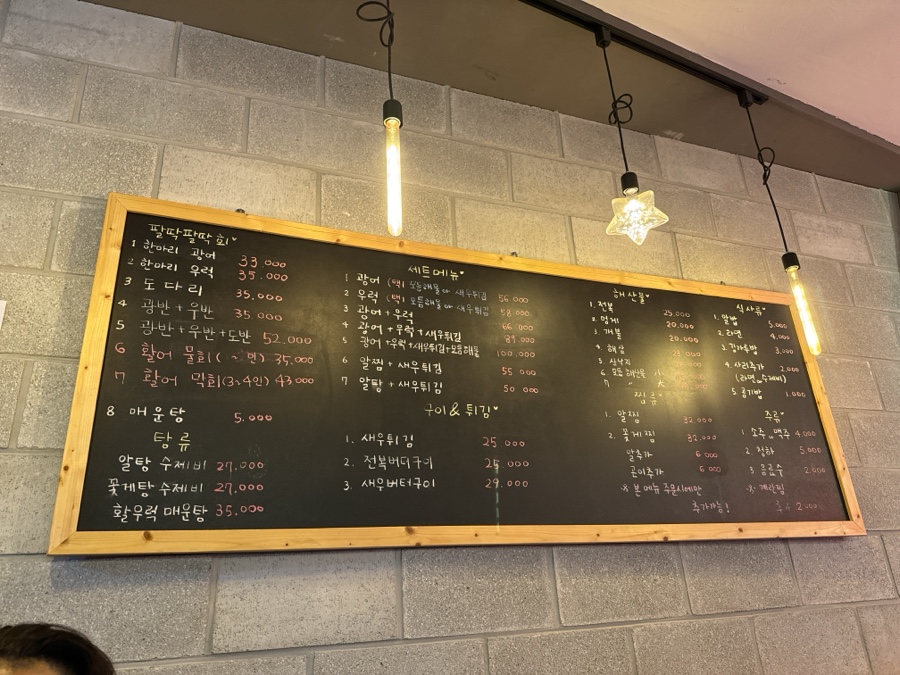 팔딱팔딱회♥
1 한마리 광어 33.000
2 한마리 우럭 35.000
3 도다리 35.000
4 광반+우반 35.000
5 광반+우반+도반 52.000
6 활어 물회( 면) 35.000
7 활어 막회(3~4인) 43000
8 매운탕 5.000
탕류
알탕 수제비 27.000
꽃게탕 수제비 27.000
활우럭 매운탕 35.000
세트메뉴♥
1 광어 모듬해물 or 새우튀김 56 000
2 우럭 모듬해물 or 새우튀김 58 000
3 광어+우럭 66 000
4 광어+우럭+새우튀김 89 000
5 광어+우럭+새우튀김+모듬해물 100.000
6 알찜+새우튀김 55 000
7 알탕+새우튀김 50 000
구이&튀김♥
1. 새우튀김 25 000
2. 전복버터구이 25 000
3. 새우버터구이 29.000
해산물♥
1. 전복 25.000
2. 멍게 20.000
3. 개불 20.000
4. 해삼
5. 산낙지
6 모듬해산물 小
7 大
찜류♥
1. 알찜 32.000
2. 꽃게찜 32.000
알추가 6 000
곤이추가 6 000
※ 본메뉴 주문시에만
추가가능!
식사류♥
1. 알밥 5,000
2. 라면 4,000
3,000
4. 사리추가 2,000
(라면 or 수제비)
5. 공기밥 1,000
주류♥
1 소주 or 맥주 4 000
2. 청하 5,000
3 음료수 2,000
※ 계란찜
2 000